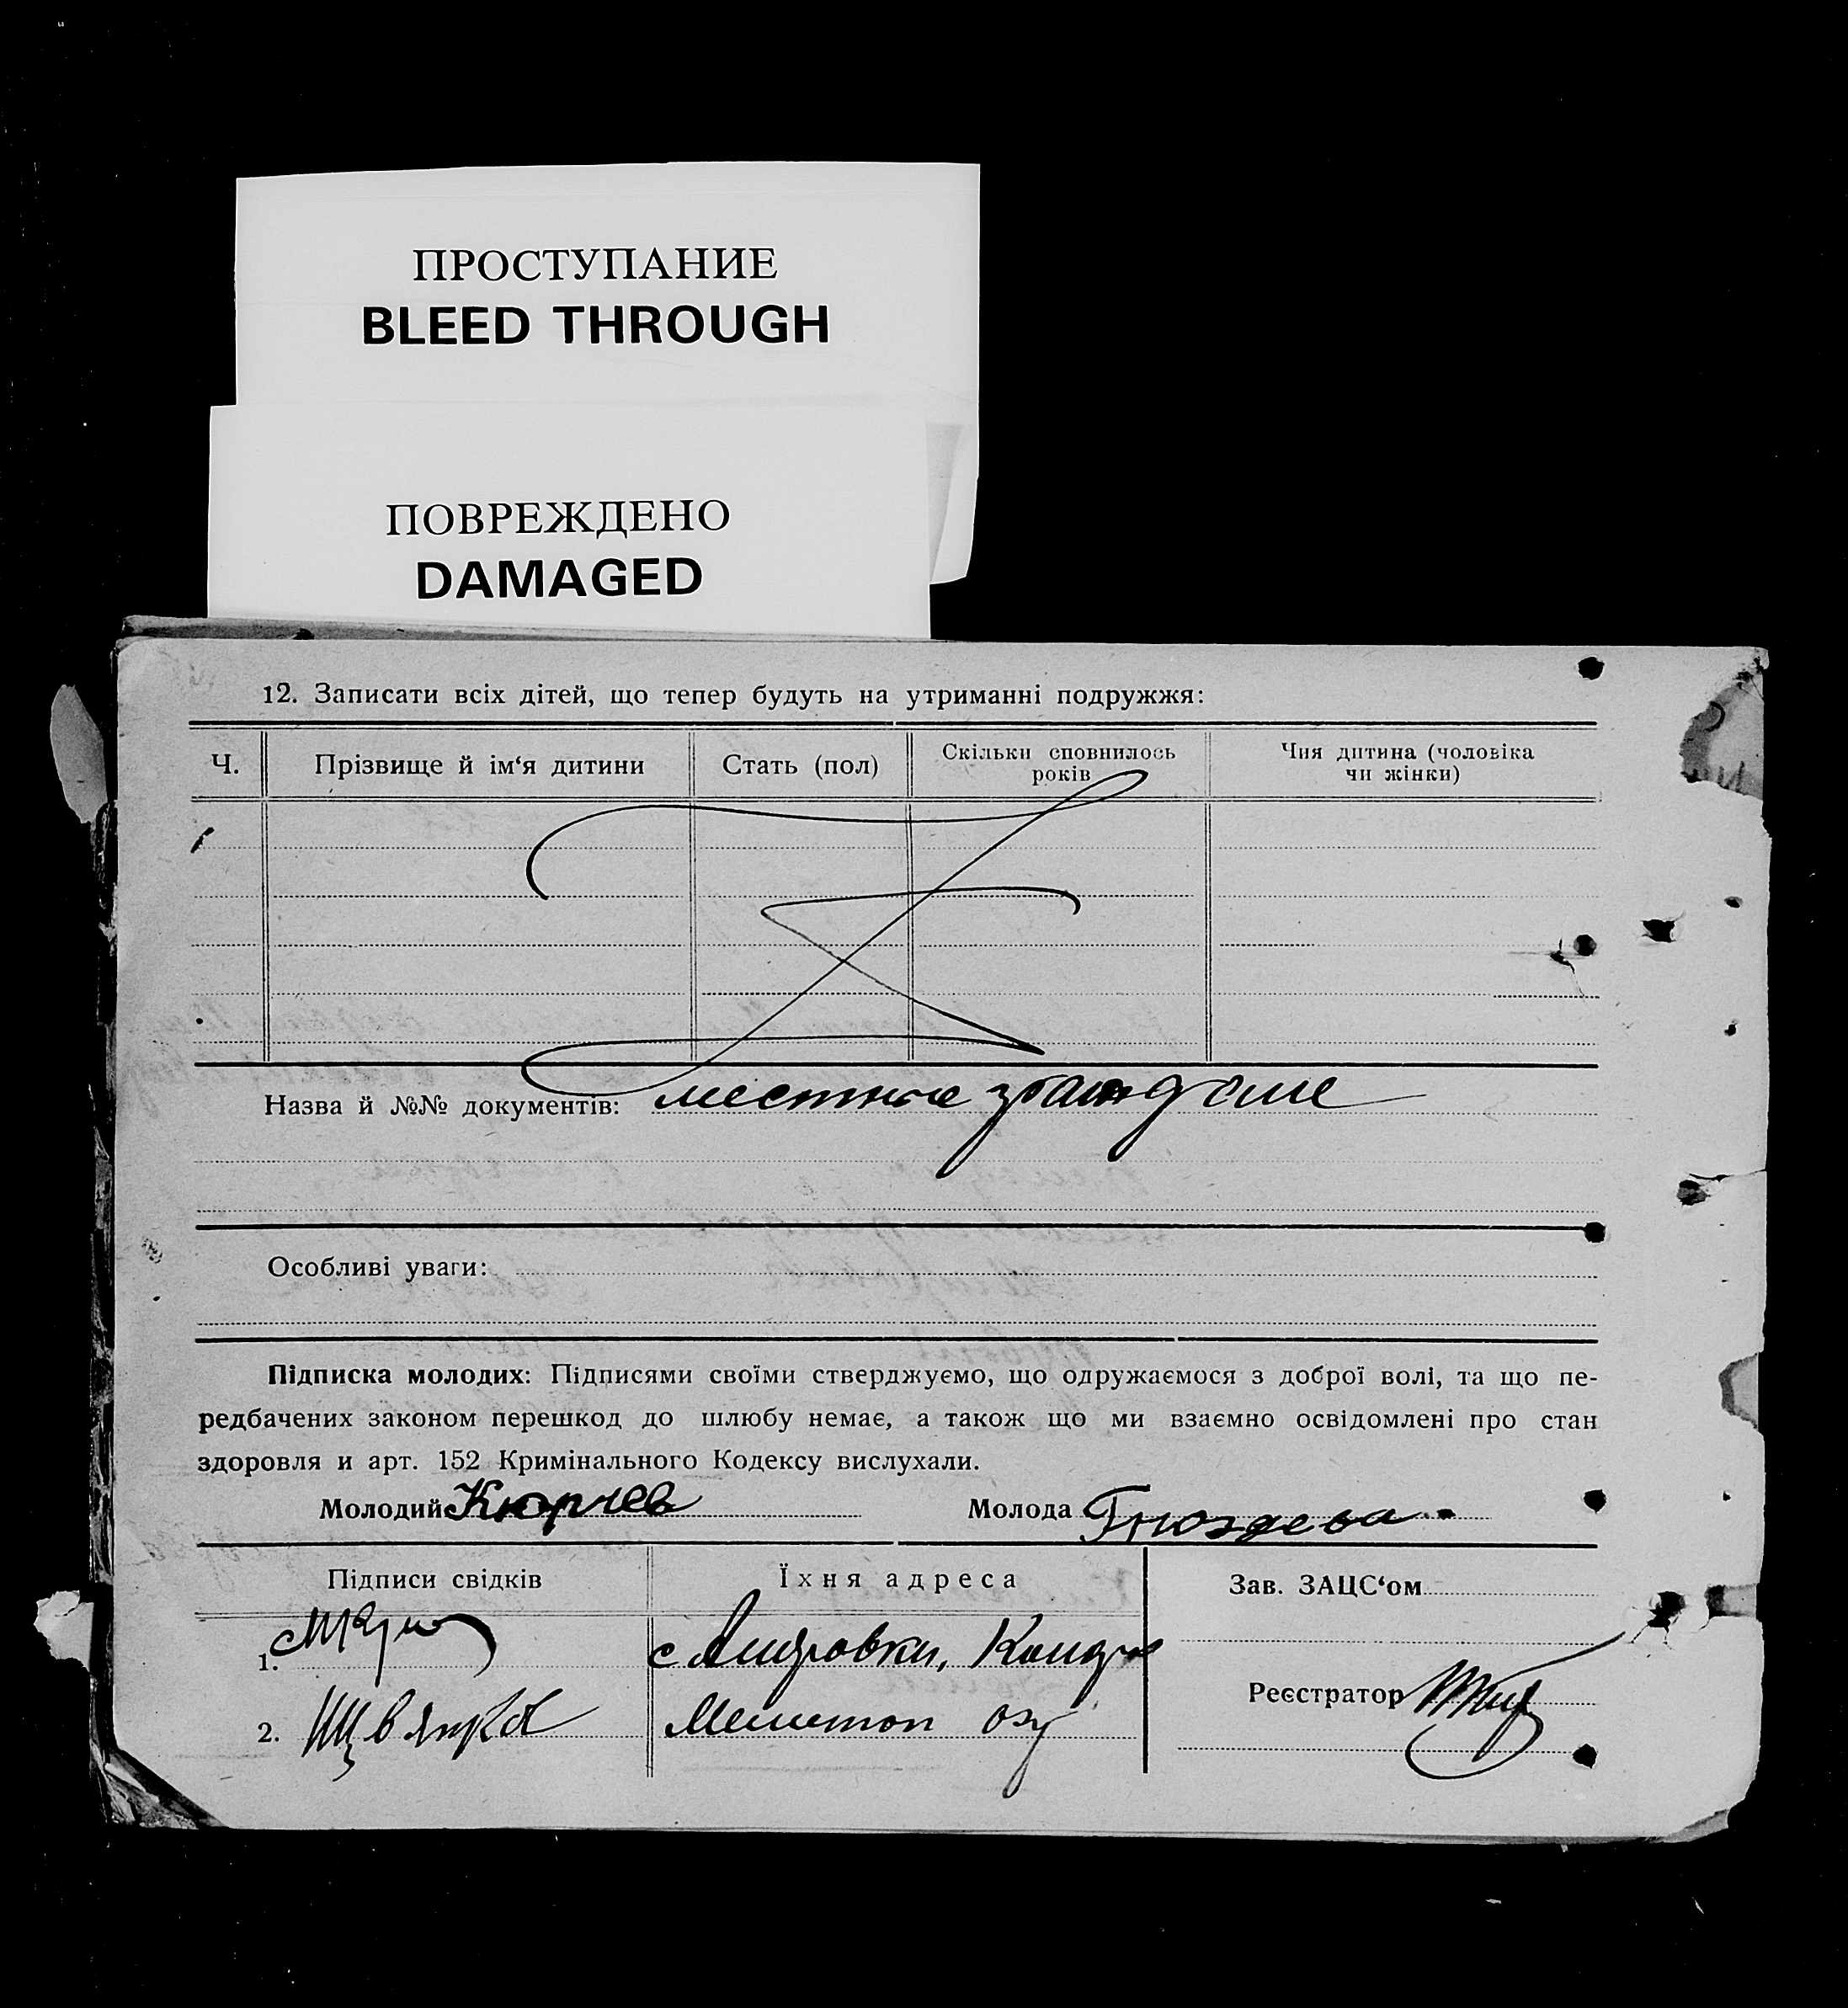 ПРОСТУПАНИЕ
BLEED THROUGH
ПОВРЕЖДЕНО
DAMAGED
12. Записати всіх дітей, що тепер будуть на утриманні подружжя:
Ч. Прізвище й ім‘я дитини Стать (пол) Скільки сповнилось років Чия дитина (чоловіка чи жінки)
Назва й №№ документів: местные
Особливі уваги:
Підписка молодих: Підписями своїми стверджуємо, що одружаємося з доброї волі, та що пе-
редбачених законом перешкод до шлюбу немає, а також що ми взаємно освідомлені про стан
здоровля и арт. 152 Кримінального Кодексу вислухали.
Молодий Кюрчев Молода
Підписи свідків Їхня адреса Зав. ЗАЦС‘ом
1. с
Реєстратор
2.